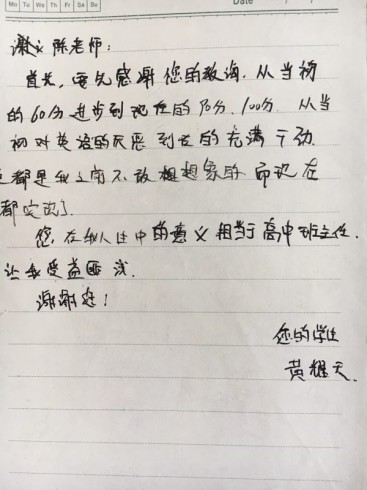 Mo Tu We Th Fr Sa Su
Date / /
谢谢陈老师：
首先，要先感谢您的教海，从当初
的60分进步到现在的90分、100分，从当
初对英语的厌恶到在的充满干劲.
这都是我之前不敢想想象的而现在
都实现了.
您，在我人生中的意义相当于高中班主任.
让我受益匪浅.
谢谢您！
您的学生
黄耀天.